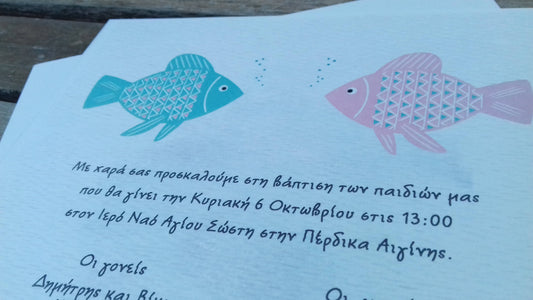 Με χαρά σας προσκαλούμε στη βάπτιση των παιδιών μας
που θα γίνει την Κυριακή 6 Οκτωβρίου στις 13:00
στον Ιερό Ναό Αγίου Σώστη στην Πέρδικα Αιγίνης.
Οι γονείς
Δημήτρης και
Οι